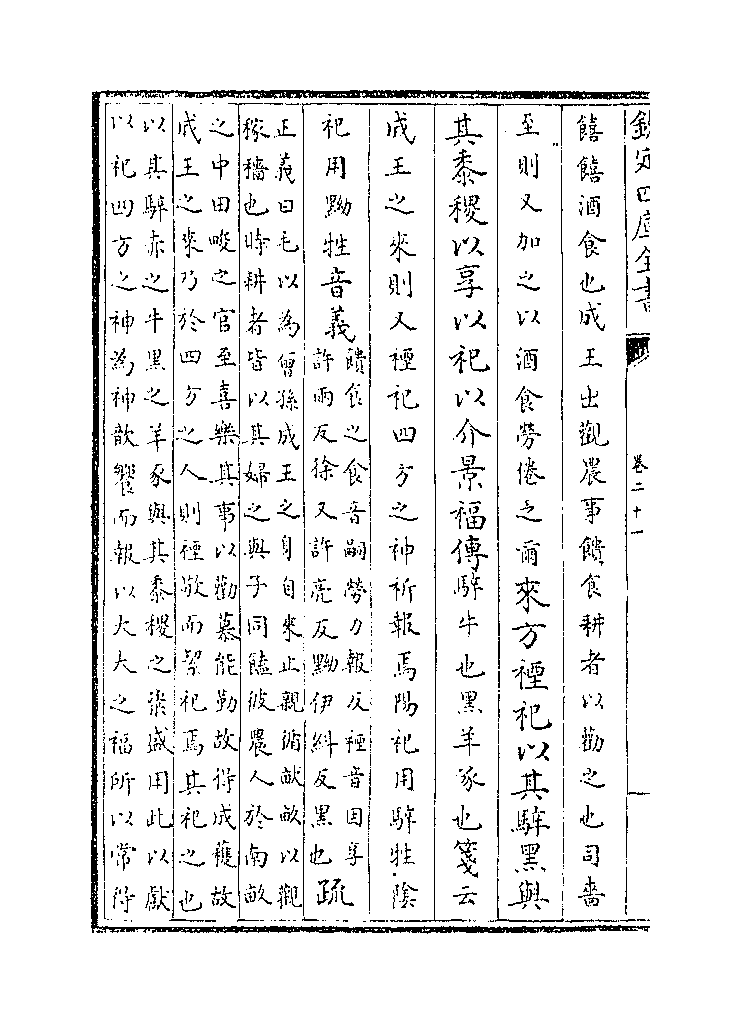 欽定四庫全書
卷二十一
饎饎酒食也成王出觀農事饋食耕者以勸之也司嗇
至則又加之以酒食勞倦之爾來方禋祀以其騂黑與
其黍稷以享以祀以介景福傳騂牛也黑羊豕也箋云
成王之來則又禋祀四方之神祈報焉陽祀用騂牲陰
祀用黝牲音義
饋食之食音嗣勞力報反禋音因享
許兩反徐又許亮反黝伊糾反黑也
疏
正義曰毛以為曾孫成王之身自來止親循畎畝以觀
稼穡也時耕者皆以其婦之與子同饁彼農人於南畝
之中田畯之官至喜樂其事以勸慕能勤故得成穫故
成王之來乃於四方之人則禋敬而絜祀焉其祀之也
以其騂赤之牛黑之羊豕與其黍稷之粢盛用此以獻
以祀四方之神為神歆饗而報以大大之福所以常得